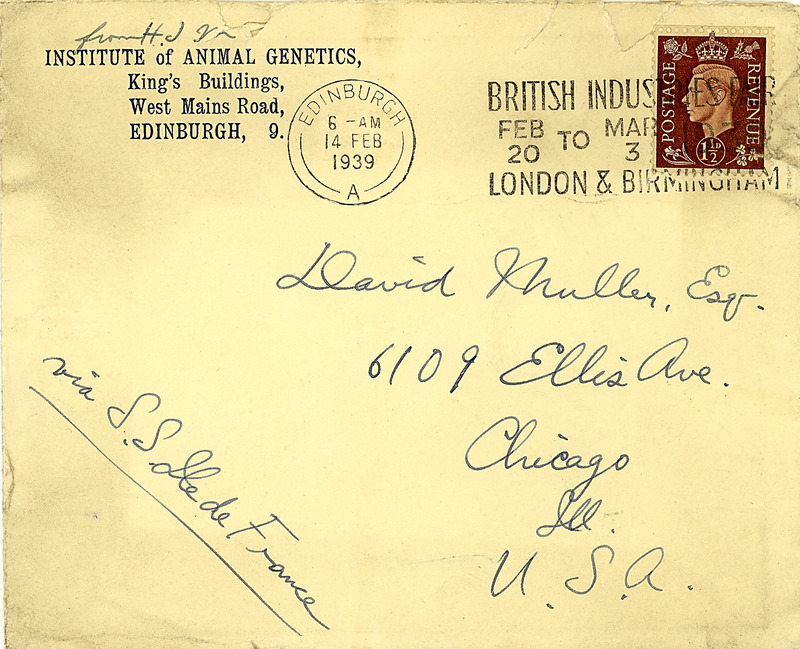 from H. J.
INSTITUTE of ANIMAL GENETICS,
King's Buildings,
West Mains Road,
EDINBURGH, 9.
EDINBURGH
6 - AM
14 FEB
1939
A
BRITISH INDUSTRIES FAIR
FEB TO MAR
20 3
LONDON & BIRMINGHAM
POSTAGE REVENUE
1½D
David Muller, Esq.
6109 Ellis Ave.
Chicago
Ill.
U. S. A.
via S.S. Ile de France